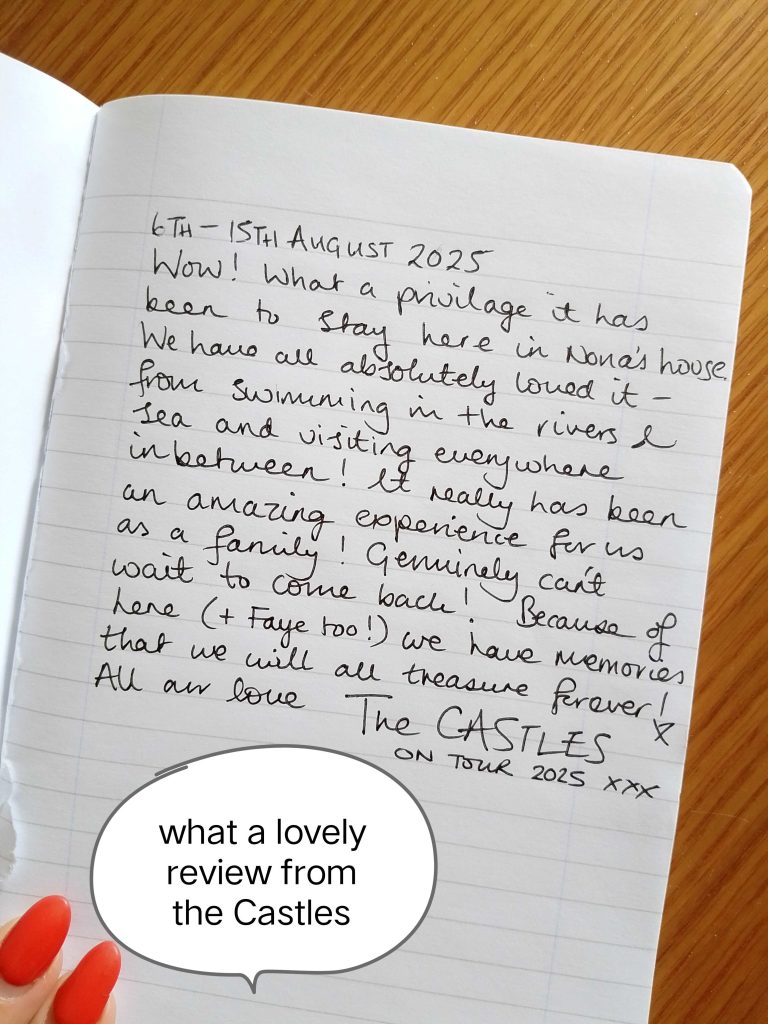 6TH - 15TH AUGUST 2025
Wow! What a privilage it has
been to stay here in Nona's house.
We have all absolutely loved it -
from swimming in the rivers &
sea and visiting everywhere
inbetween! It really has been
an amazing experience for us
as a family! Genuinely can't
wait to come back! Because of
here (+ Faye too!) we have memories
that we will all treasure forever!
All our love The CASTLES X
ON TOUR 2025 xxx
what a lovely
review from
the Castles